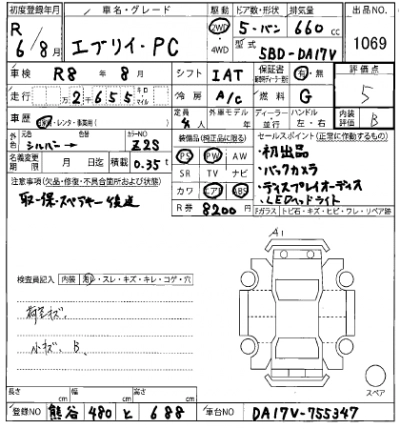 初度登録年月 車名・グレード 駆動 ドア数・形状 排気量 出品NO
R 6/8月 エブリイ・PC 2WD 4WD 5・バン 660 cc 1069
型式 5BD-DA17V
車検 R8年 8月 シフト IAT 保証書 有・無 評価点
走行 万2千655 キロ マイル 冷房 A/C 燃料 G 5
車歴 自家・レンタ・事業用 定員 4人 外車モデル年 ディーラー 並行 ハンドル 左・右 内装評価 B
外色 元色 シルバー→ カラーNO Z2S 装備品(純正品に限る) セールスポイント(正常に作動するもの)
名義変更期限 月 日迄 積載 0.35t PS PW AW ・初出品
注意事項(欠品・修復・不具合箇所および状態) SR TV ナビ ・バックカメラ
取・保・スペアキー後送 カワ エアB ABS ・ディスプレイオーディオ
R券 8200円 ・LEDヘッドライト
Fガラス トビ石・キズ・ヒビ・ワレ・リペア跡
A1
検査員記入 内装 ・スレ・キズ・キレ・コゲ・穴
荷室キズ、
小キズ、B
スペア
長さ cm 幅 cm 高さ cm
登録NO 熊谷 480 と 688 車台NO DA17V-755347